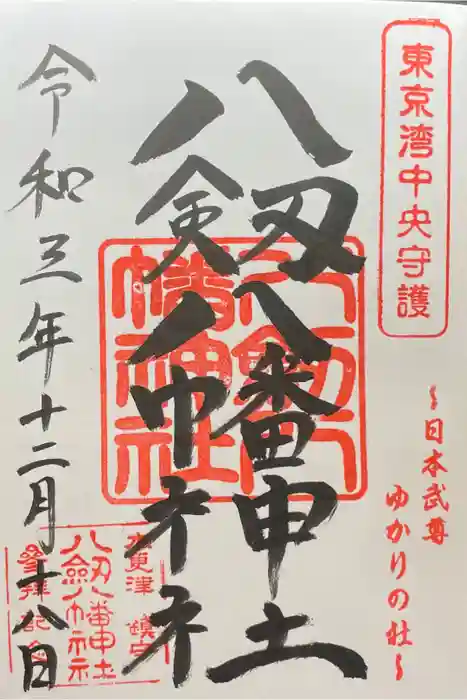 東京湾中央守護
~日本武尊
ゆかりの社~
八剱八幡神社
令和三年十二月十八日
八剱八幡神社
木更津 鎮守
八剱八幡神社
参拝記念